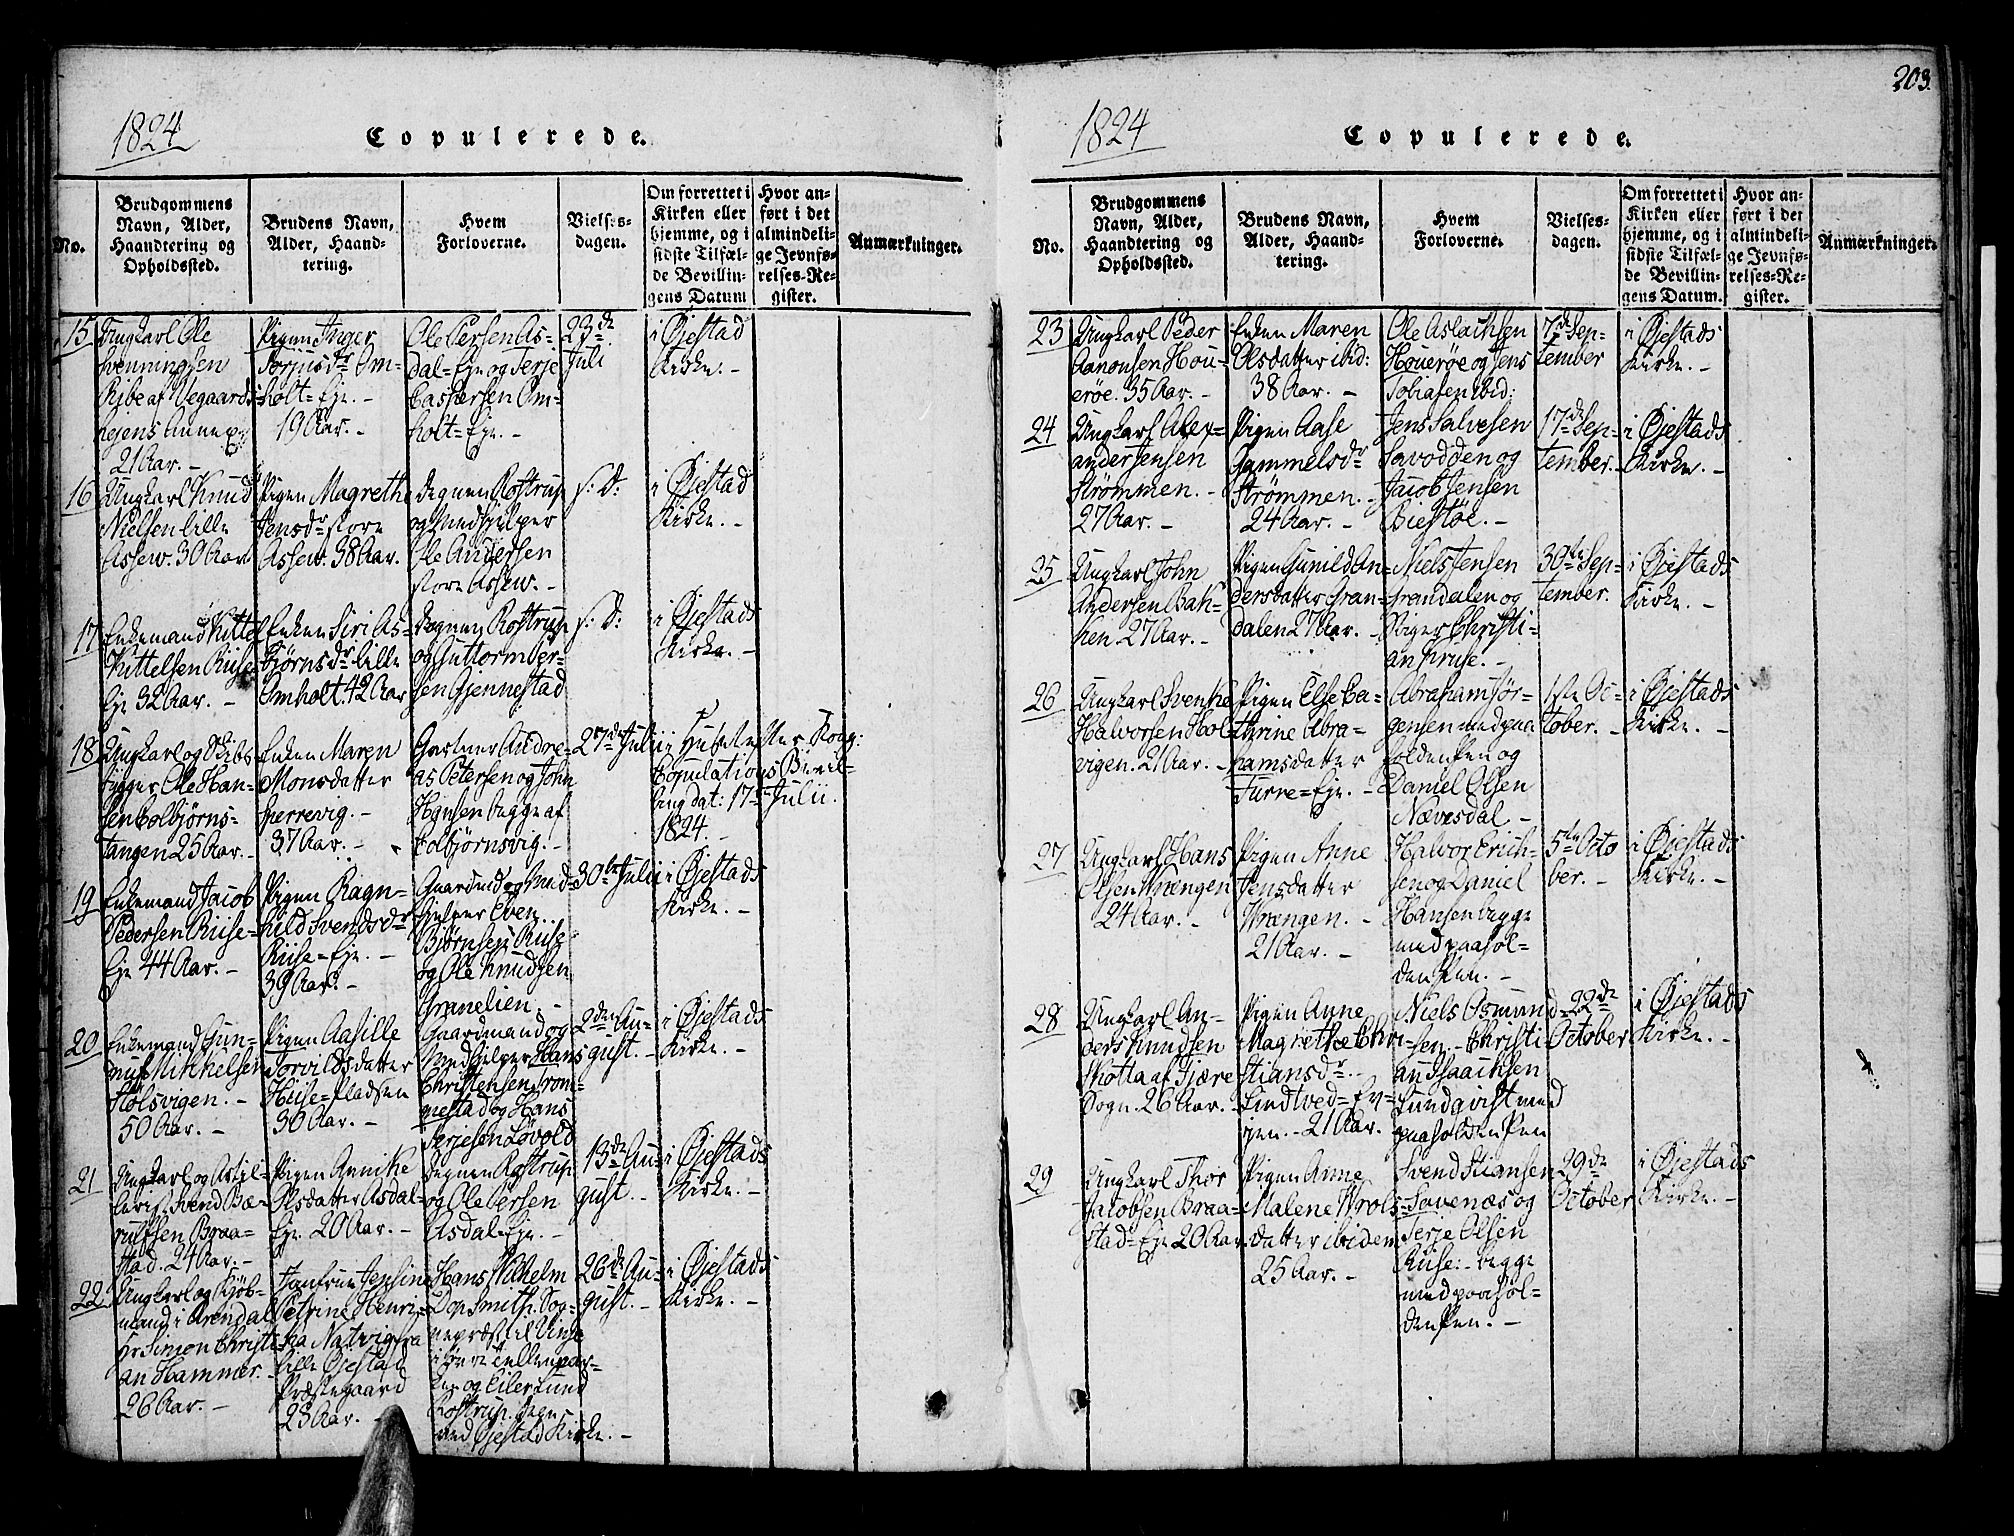 1824
Copulerede.
No.
Brudgommens
Navn, Alder,
Haandtering og
Opholdssted.
Brudens Navn,
Alder, Haand-
tering.
Hvem
Forloverne.
Vielses-
dagen.
Om forrettet i
Kirken eller
hjemme, og i
sidste Tilfæl-
de Bevillin-
gens Datum
Hvor an-
ført i det
almindeli-
ge Jevnfø-
relses-Re-
gister.
Anmærkninger.
15
Ungkarl Ole
Svenningsen
Ribe af Vegaards-
hejens Annex
21 Aar. -
Pigen Inger
Terjusdr Om-
holt=Eje. -
19 Aar. -
Ole Persen As-
dal=Eje og Terje
Caspersen Om-
holt=Eje. -
23de
Juli
i Øjestad
Kirke. -
16
Ungkarl Knud
Nielsen lille
Assew. 30 Aar
Pigen Magrethe
Jensdr store
Assew. 38 Aar.
Degnen Rostrup
og Medhjelper
Ole Andersen
store Assew. -
s: D:
i Øjestad
Kirke. -
17
Enkemand Kittel
Kittelsen Riise
Eje 32 Aar. -
Enken Siri As-
bjørnsdr lille
Omholt. 42 Aar
Degnen Rostrup
og Guttorm Per-
sen Gjennestad
s: D:
i Øjestads
Kirke. -
18
Ungkarl og Skibs
tygger Ole Han-
sen Colbjørns-
tangen 25 Aar. -
Enken Maren
Monsdatter
Sperrevig. -
37 Aar. -
Gartner Andre-
as Petersen og John
Hansen begge af
Colbjørnsvig. -
27de Julii
i Huset efter Kong:
Copulations Bevil-
ling dat: 17de Julii.
1824. -
19
Enkemand Jacob
Pedersen Riise=
Eje 44 Aar. -
Pigen Ragn-
hild Svendsdr
Riise=Eje. -
39 Aar. -
Gaardmd og Med-
hjelper Even
Bjørnsen Riise
og Ole Knudsen
Granelien. -
30te Julii
i Øjestads
Kirke. -
20
Enkemand Gun-
nuf Mikkelsen
Stølsvigen. -
50 Aar. -
Pigen Aasille
Torvildsdatter
Hiise=Pladsen
30 Aar. -
Gaardmand og
Medhjelper Hans
Christensen From-
nestad og Hans
Terjesen Løvold
2den Au-
gust. -
i Øjestads
Kirke. -
21
Ungkarl og Artil-
lerist Svend Bæ-
rulfsen Braa-
stad. 24 Aar. -
Pigen Annike
Olsdatter Asdal-
Eje 20 Aar. -
Degnen Rostrup
og Ole Persen
Asdal=Eje. -
13de Au-
gust. -
i Øjestads
Kirke. -
22
Ungkarl og Kjøb-
mand i Arendal
Hr Simon Christi-
an Hammer. -
26 Aar. -
Jomfrue Jensine
Petrine Henri-
ka Natvig fra
lille Øjestad
Præstegaard
23 Aar. -
Hans Wilhelm
Dop Smith. Sog-
nepræst til Vinje
i øvre Tellemar-
ken og Eiler Lund
Rostrup. Degn
ved Øjestad Kirke. -
26de Au-
gust. -
i Øjestads
Kirke. -
203.
1824
Copulerede.
No.
Brudgommens
Navn, Alder,
Haandtering og
Opholdssted.
Brudens Navn,
Alder, Haand-
tering.
Hvem
Forloverne.
Vielses-
dagen.
Om forrettet i
Kirken eller
hjemme, og i
sidste Tilfæl-
de Bevillin-
gens Datum.
Hvor an-
ført i det
almindeli-
ge Jevnfø-
relses-Re-
gister.
Anmærkninger.
23
Ungkarl Peder
Aanonsen Hou-
erøe. 35 Aar. -
Enken Maren
Olsdatter ibid:
38 Aar. -
Ole Aslachsen
Houerøe og Jens
Tobiasen ibid:
7de Sep-
tember
i Øjestads
Kirke. -
24
Ungkarl Alex-
ander Jensen
Strømmen. -
27 Aar. -
Pigen Aase
Gammelsdr
Strømmen. -
24 Aar. -
Jens Salvesen
Savodden og
Jacob Jensen
Biestøe. -
17de Sep-
tember. -
i Øjestads
Kirke. -
25
Ungkarl John
Andersen Bak-
ken 27 Aar. -
Pigen Gunild An-
dersdatter Gran-
dalen 27 Aar. -
Niels Jensen
Grandalen og
Roger Christi-
an Kruse. -
30te Sep-
tember.
i Øjestads
Kirke. -
26
Ungkarl Svenke
Halvorsen Høl-
vigen. 21 Aar. -
Pigen Else Ca-
thrine Abra-
hamsdatter
Furre=Eje. -
Abraham Jør-
gensen med paa
holden Pen og
Daniel Olsen
Nævesdal -
1ste Oc-
tober. -
i Øjestads
Kirke. -
27
Ungkarl Hans
Olsen Wrengen
24 Aar. -
Pigen Anne
Jensdatter
Wrængen. -
21 Aar. -
Halvor Erich-
sen og Daniel
Hansen begge
med paahol-
den Pen. -
5te Octo
ber. -
i Øjestads
Kirke. -
28
Ungkarl An-
ders Knudsen
Skotta af Fjære
Sogn. 26 Aar. -
Pigen Anne
Magrethe Chri-
stiansdr. -
Lindtved=Ey-
jen. - 21 Aar.
Niels Osmund-
sen. - Christi-
an Isaachsen
Lundqvist med
paaholden Pen
22de
October
i Øjestads
Kirke. -
29
Ungkarl Thor
Jacobsen Braa-
stad=Eje 20 Aar
Pigen Anne
Malene Wrols-
datter ibidem
25 Aar. -
Svend Stiansen
Savenæs og
Terje Olsen
Riise: - begge
med paahol-
den Pen. -
29de
October
i Øjestads
Kirke. -